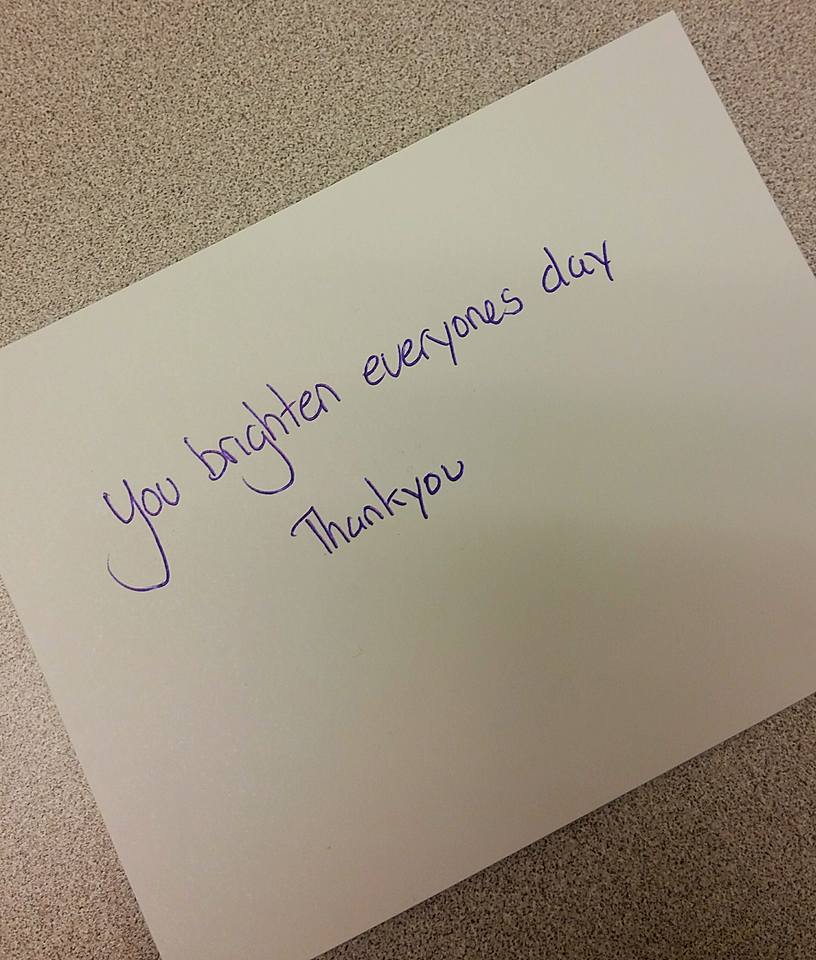 You brighten everyones day
Thankyou